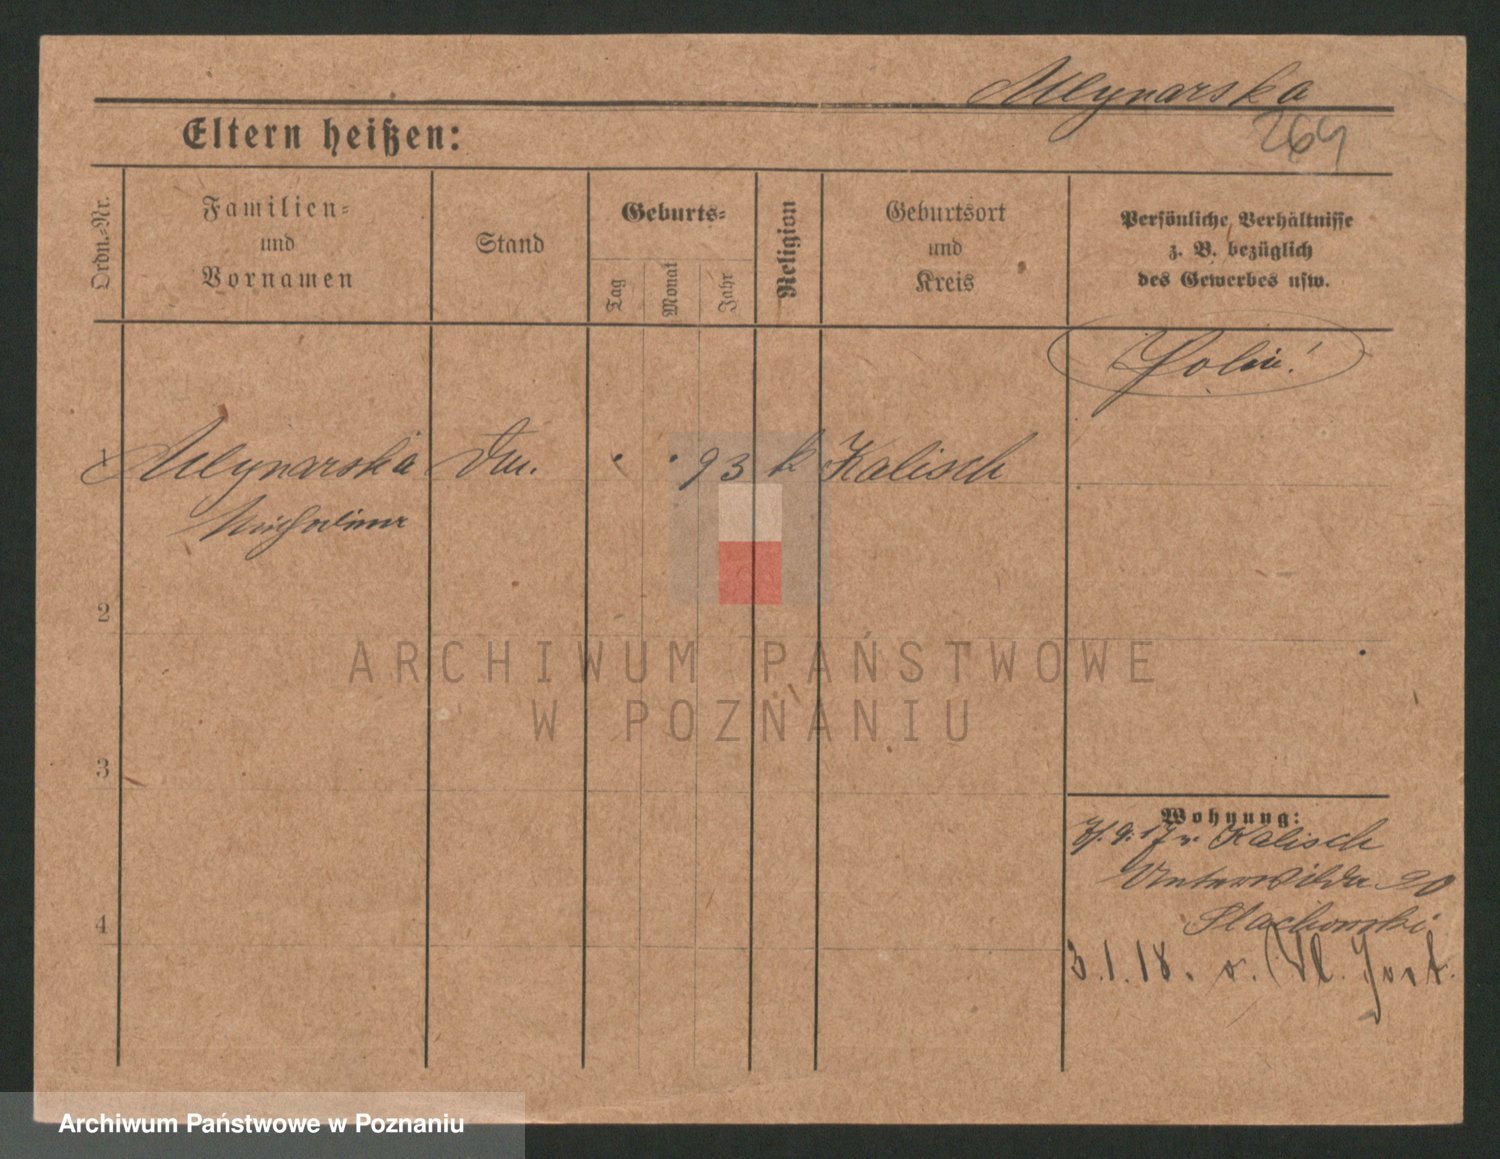 Mlynarska
Eltern heißen:
264
Ordn.-Nr.
Familien-
und
Vornamen
Stand
Geburts-
Tag
Monat
Jahr
Religion
Geburtsort
und
Kreis
Persönliche Verhältnisse
z. B. bezüglich
des Gewerbes usw.
1 Mlynarska . . 93 k. Kalisch
2
ARCHIWUM PAŃSTWOWE
W POZNANIU
3
Wohnung:
17 v. Kalisch
Unterwilda 20
Stachowski
4
3.1.18.
Archiwum Państwowe w Poznaniu